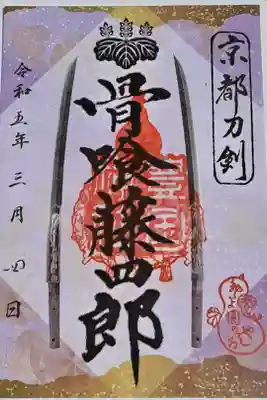 京都刀剣
骨喰藤四郎
令和五年三月四日